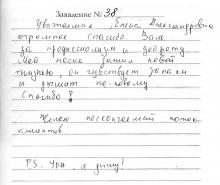 Заявление № 38
Уважаемая, Елена Александровна
огромное спасибо Вам
за профессионализм и доброту
Мой носик зажил новой
жизнью, он чувствует запахи
и дышит по-новому
Спасибо!
Желаю нескончаемый поток
клиентов.
P.S. Ура, я дышу!